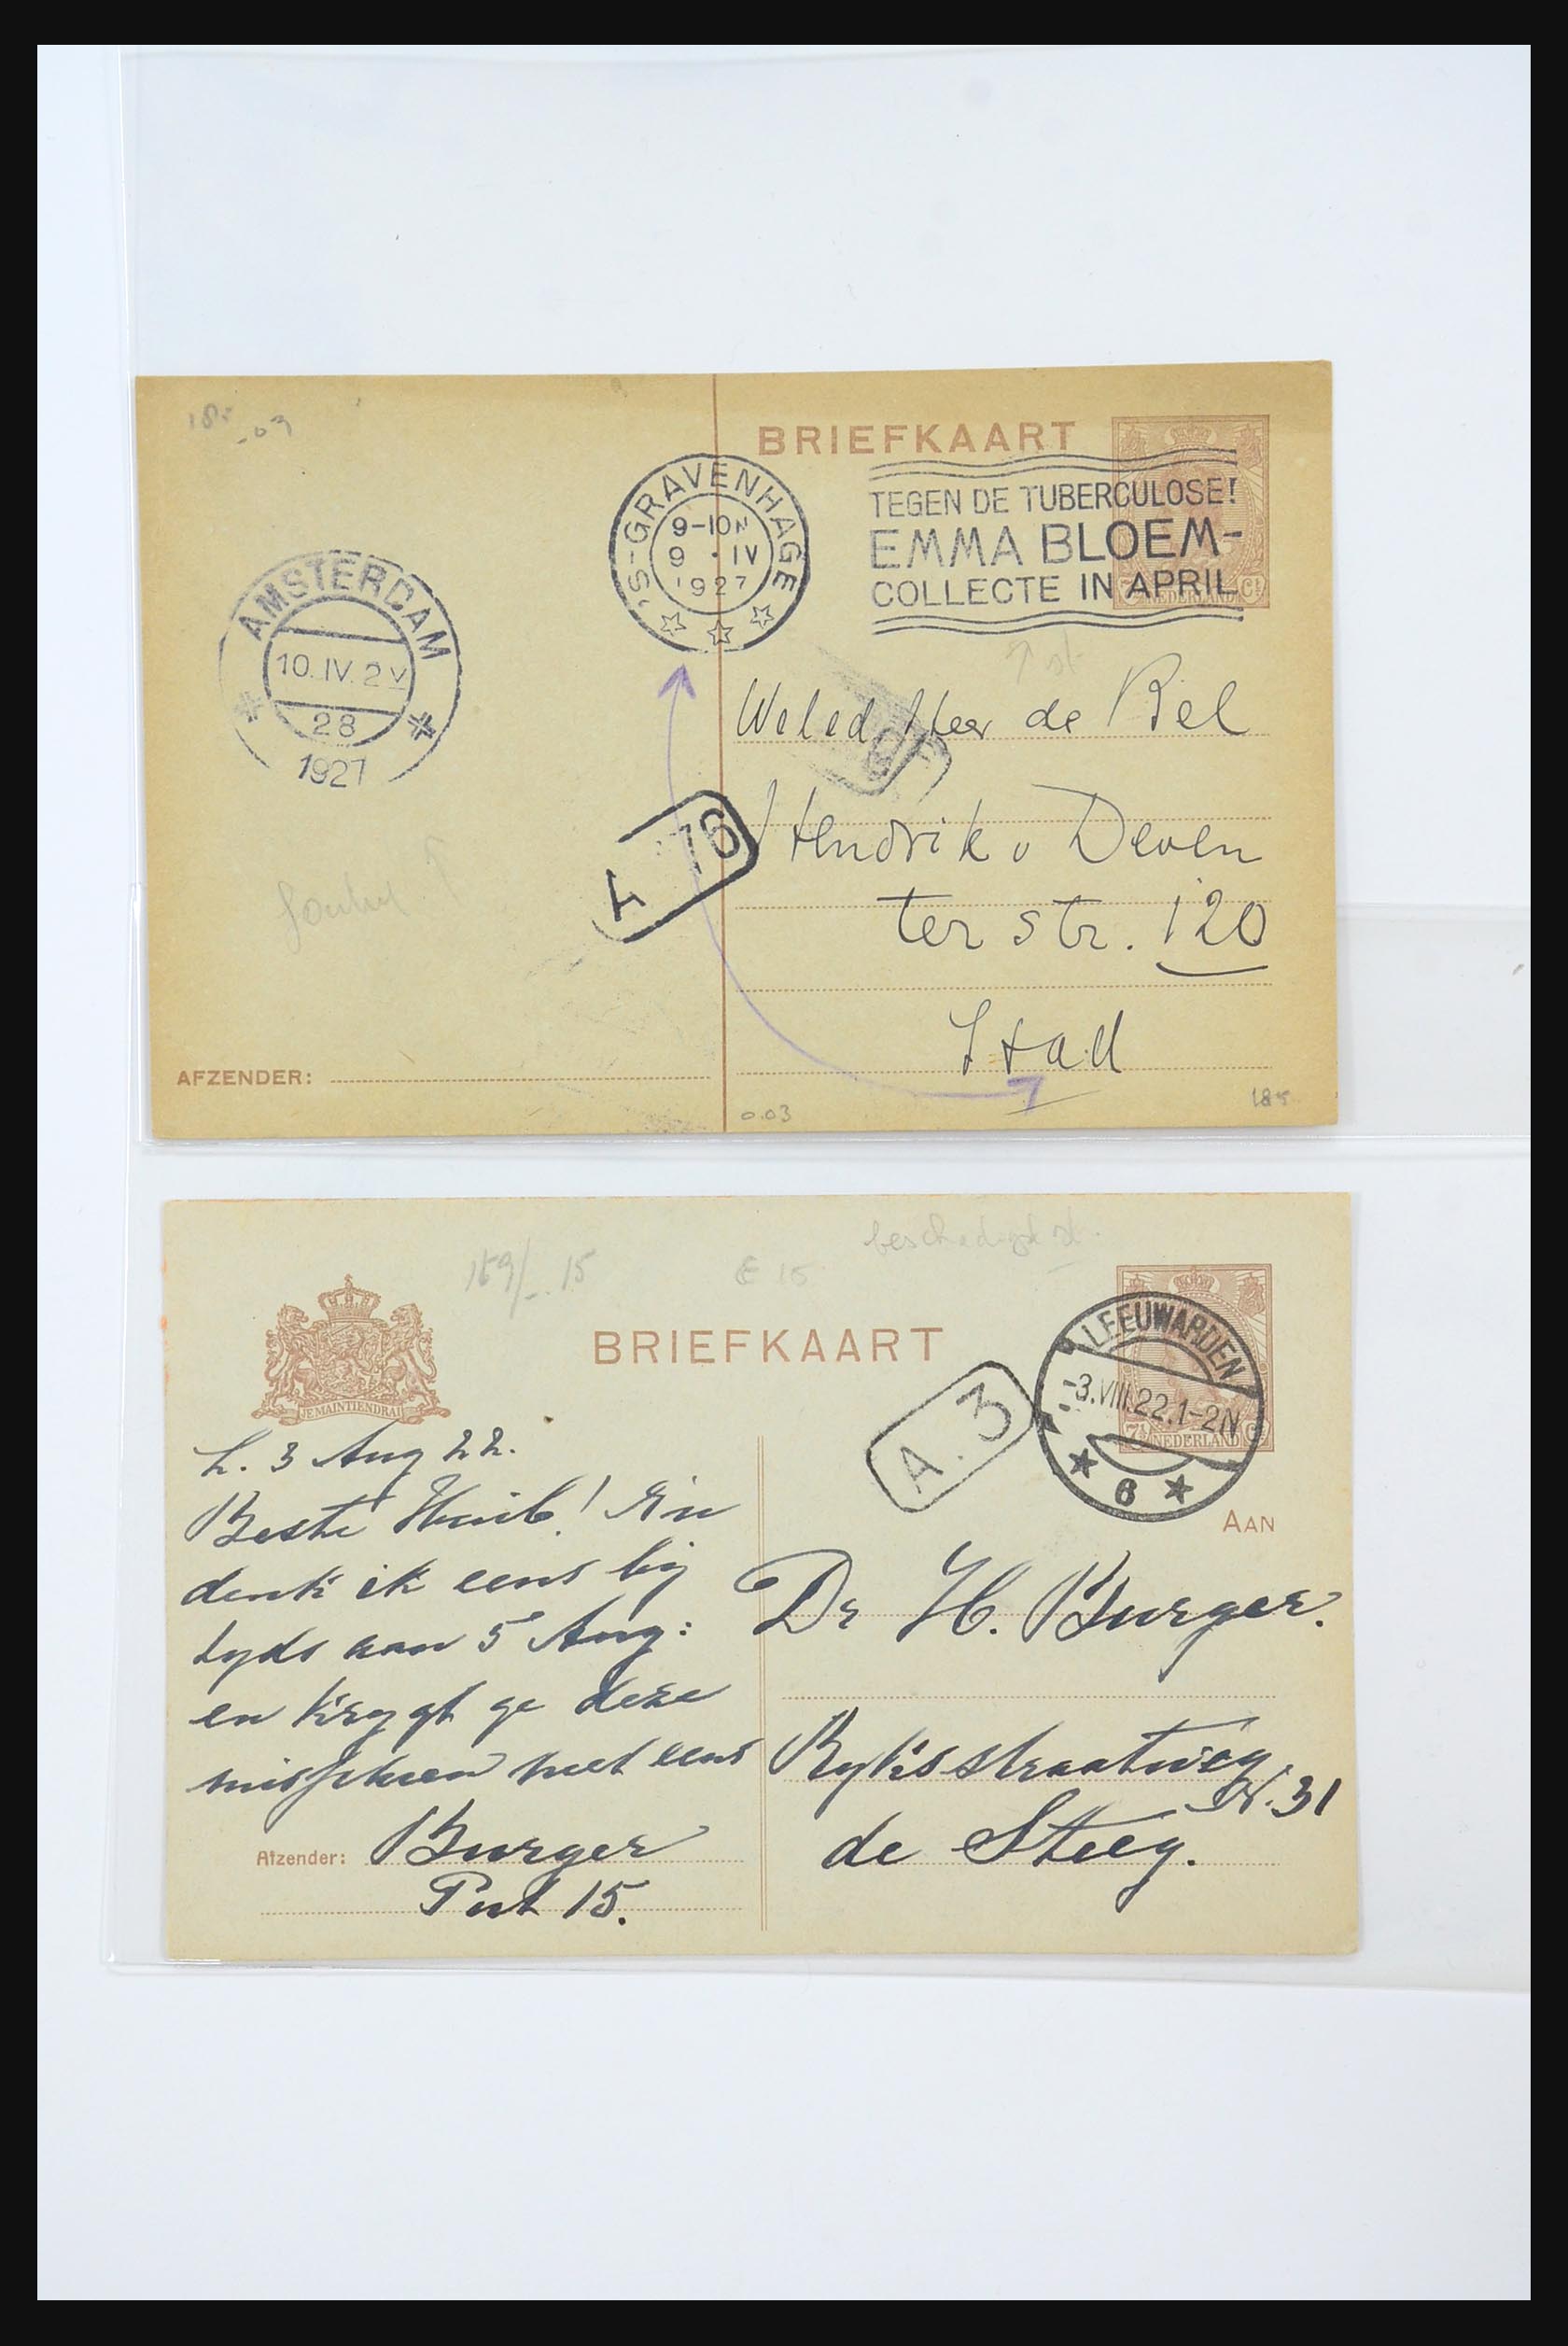 BRIEFKAART
'S-GRAVENHAGE
9-10N
9 . IV
1927
TEGEN DE TUBERCULOSE!
EMMA BLOEM-
COLLECTE IN APRIL
7½ NEDERLAND Ct
AMSTERDAM
10. IV. 2 V
28
1927
Weled. Heer de Bel
A 76
Hendrik v Deven
ter str. 120
Stad
AFZENDER:
0.03
185
beschadigd st.
159/-. 15
€ 15
JE MAINTIENDRAI
BRIEFKAART
LEEUWARDEN
-3.VIII.22.1-2N
6
7½ NEDERLAND Ct
A. 3
AAN
L. 3 Aug 22.
Beste Huib! Nu
denk ik eens bij
tyds aan 5 Aug:
en krygt ge deze
misschien net eens
Afzender: Burger
Put 15.
Dr H. Burger.
Ryksstraatweg
N. 31
de Steeg.